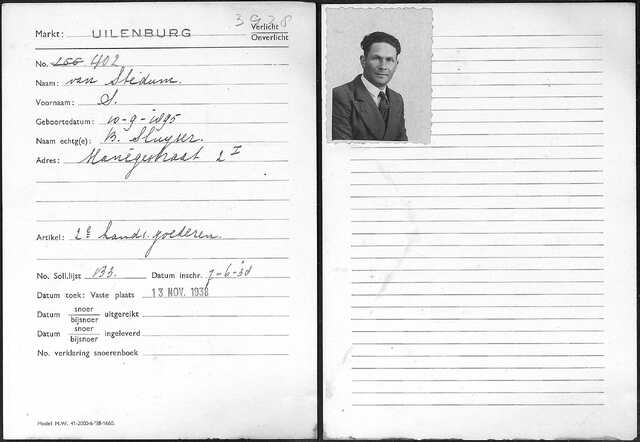 3938
Markt: UILENBURG Verlicht
Onverlicht
No. 266 402
Naam: van Stedum.
Voornaam: S.
Geboortedatum: 10-9-1895
Naam echtg(e): B. Sluyser.
Adres: Manègestraat 2 I
Artikel: 2e hands. goederen.
No. Soll.lijst 133. Datum inschr. 7-6-38
Datum toek: Vaste plaats 13 NOV. 1938
Datum snoer/bijsnoer uitgereikt
Datum snoer/bijsnoer ingeleverd
No. verklaring snoerenboek
Model M.W. 41-2000-6-'38-1660.